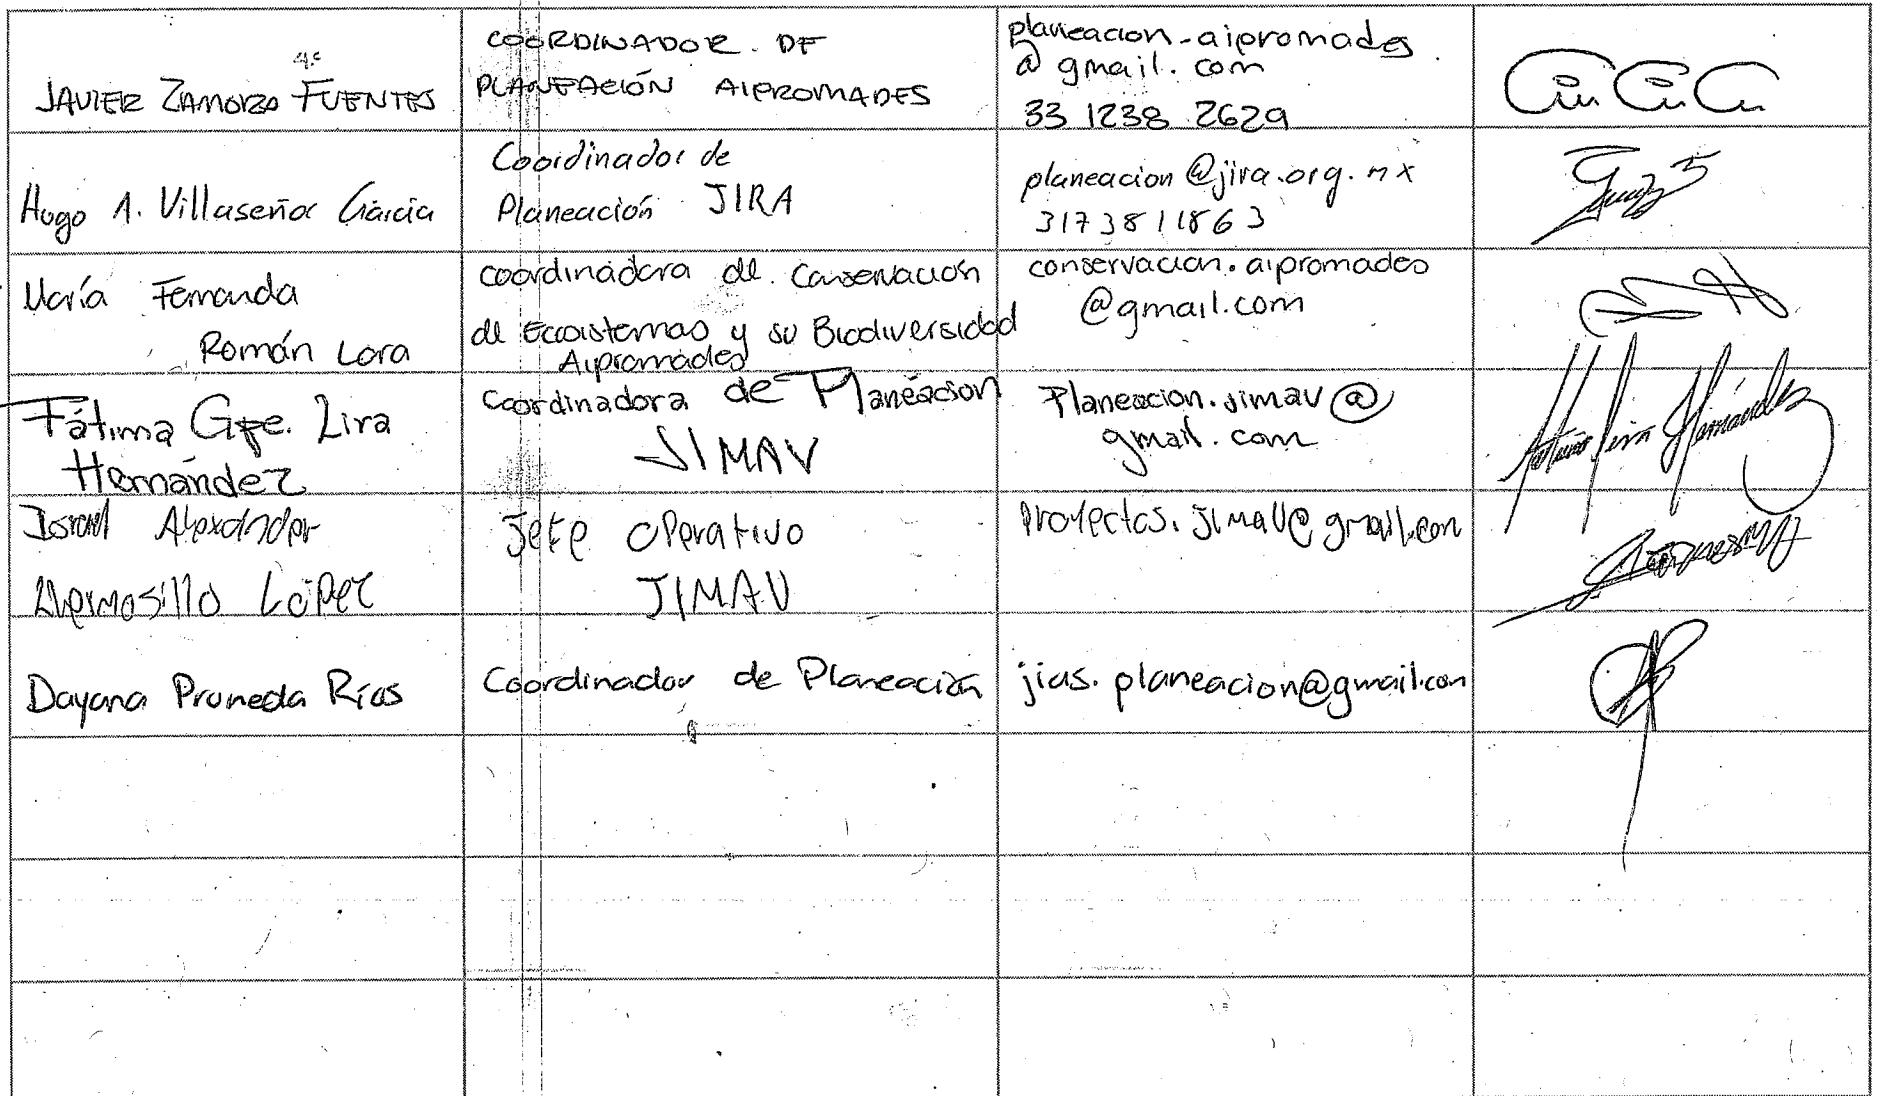 JAVIER ZAMORA FUENTES
COORDINADOR DE
PLANEACIÓN AIPROMADES
planeacion.aipromades
@ gmail.com
33 1238 2629
Hugo A. Villaseñor García
Coordinador de
Planeación JIRA
planeacion@jira.org.mx
3173811863
María Fernanda
Román Lara
coordinadora de Conservación
de Ecosistemas y su Biodiversidad
Aipromades
conservacion.aipromades
@gmail.com
Fátima Gpe. Lira
Hernández
Coordinadora de Planeación
JIMAV
Planeacion.jimav@
gmail.com
Fátima Lira Hernández
Israel Alexander
Hermosillo López
Jefe Operativo
JIMAV
Proyectos.jimav@gmail.com
Dayana Pruneda Ríos
Coordinador de Planeación
jias.planeacion@gmail.com